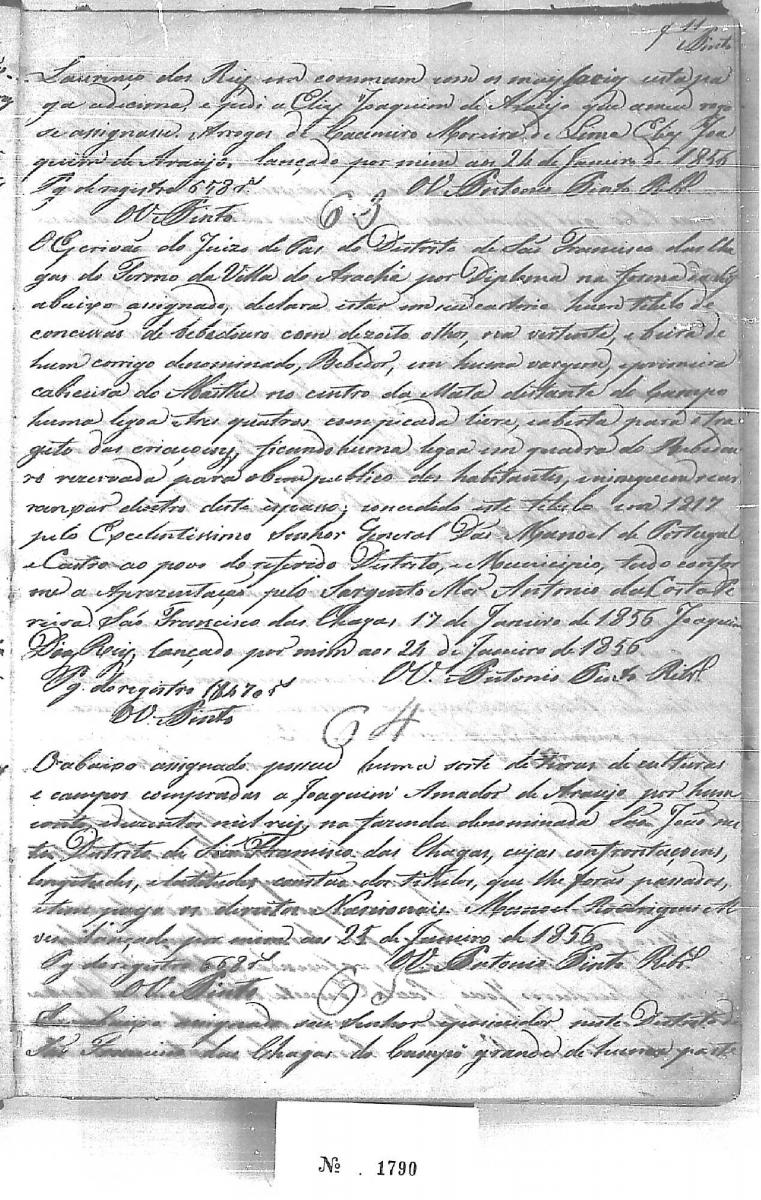 11
Pinto
Laurenço dos Reis em commum com os mais
ga adiciona, e pedi a Joaquim de Araujo que a meu rogo
se assignasse. Arogos de Casemiro Moreira de Lima Joa
quim de Araujo. lançado por mim aos 24 de Janeiro de 1856
Pg. de registro 658 rs OV. Antonio Pinto Rib.º
OV. Pinto
63
O Escrivão do Juizo de Pas do Distrito de São Francisco das Cha
gas do Termo da Villa do Arachá por Diploma na forma da Ley
abaixo assignado, declara estar em seu cartorio hum titulo de
concissão de bebedouro com dezoito olhos, na vertente, e beira de
hum corrigo denominado, Bebedor, em huma vargem, e primeira
cabiceira do no centro da Mata distante do Campo
huma legoa e tres quatros com picada livre, e aberta para o tra
geto das criaçoens, ficando huma legoa em quadra do Bebedou
ro rezervada para o bem publico dos habitantes, e ninguem se ar
ranxar dentro deste espasso; concedido este titulo em 1217
pelo Excelentissimo Senhor General Dom Manoel de Portugal
e Castro ao povo do referido Distrito, e Municipio, tudo confor
me a Aprezentação pelo Sargento Mor Antonio da Costa Pe
reira. São Francisco das Chagas 17 de Janeiro de 1856 Joaquim
Dias Reis, lançado por mim aos 24 de Janeiro de 1856
Pg. de registro OV. Antonio Pinto Rib.º
OV. Pinto
64
O abaixo assignado possue huma sorte de terras de culturas
e campos compradas a Joaquim Amador de Araujo por hum
conto e duzentos mil reis, na fazenda denominada São João nes
te Distrito de São Francisco das Chagas, cujas confrontacoens,
longitudes, e latitudes constão dos titulos, que lhe forão passados,
e tem pago os direitos Nacionais. Manoel Rodrigues
lançado por mim aos 25 de Janeiro de 1856
Pg. de registro 658 rs OV. Antonio Pinto Rib.º
OV. Pinto
65
O abaixo asignado sou Senhor e possuidor neste Distrito de
São Francisco das Chagas do Campo grande de huma parte
Nº . 1790